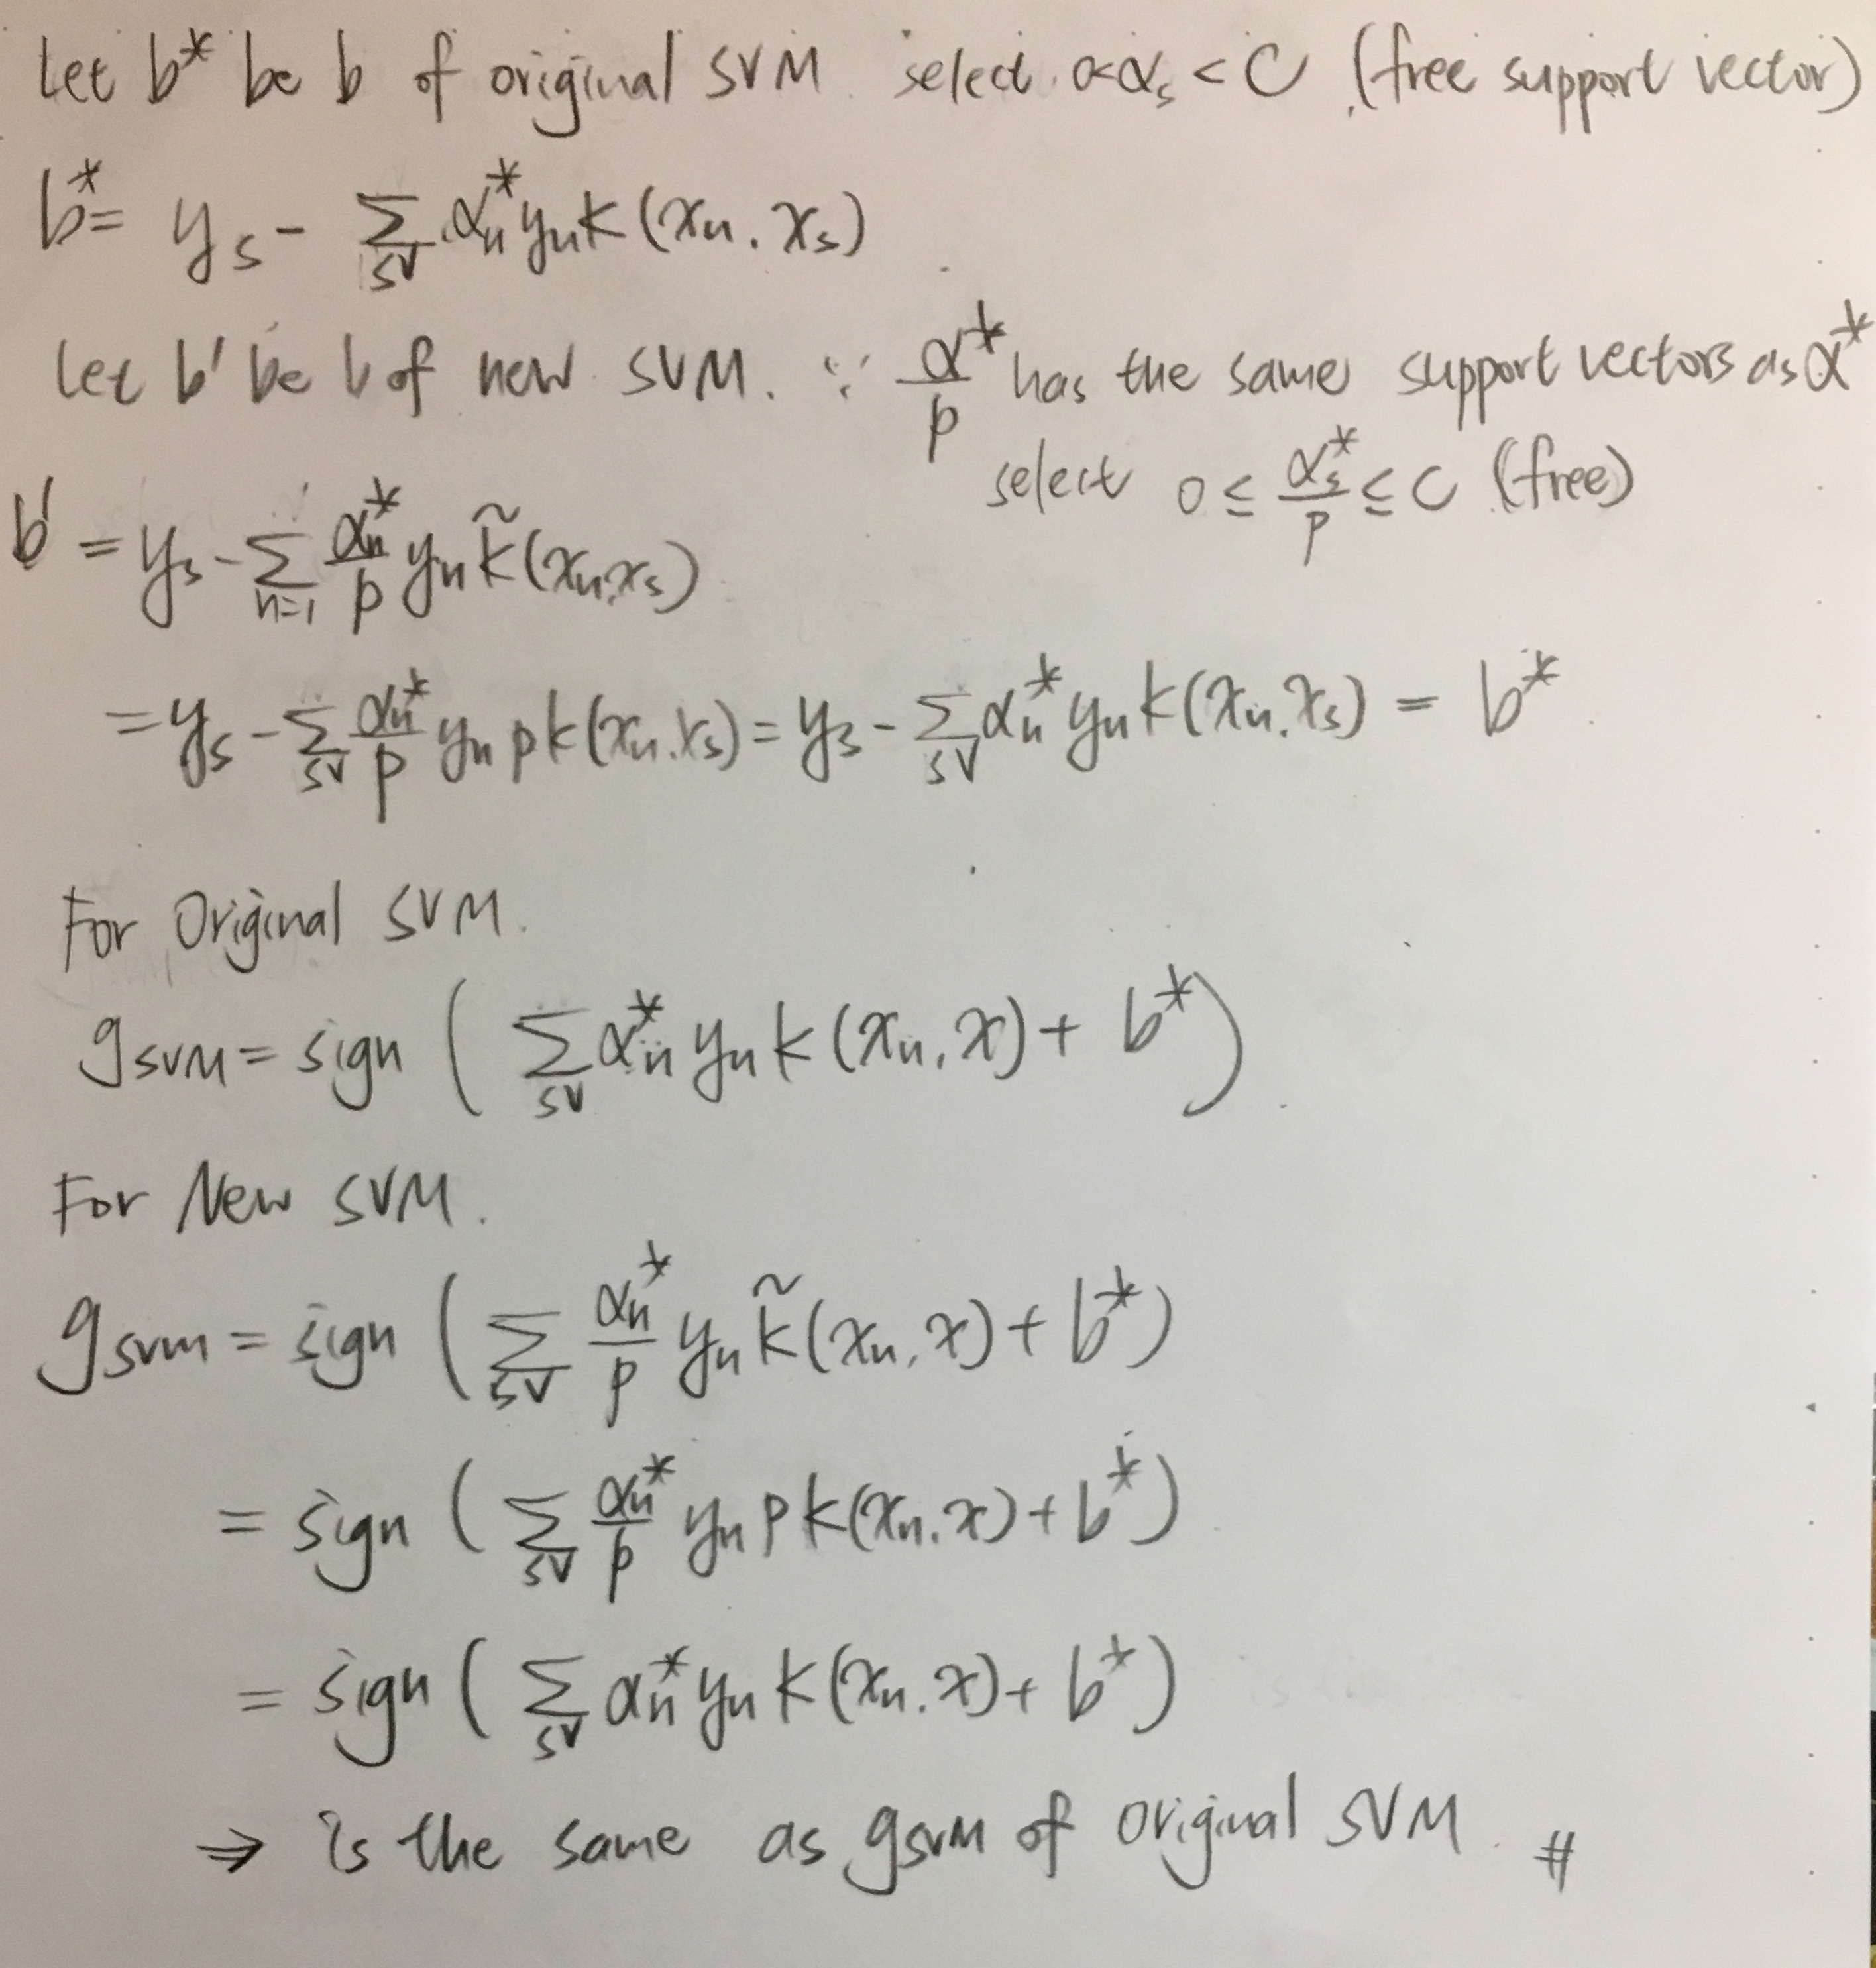 Let b* be b of original SVM. select 0<α_s<C (free support vector)
b* = y_s - Σ_{SV} α_n* y_n K(x_n, x_s)
Let b' be b of new SVM. ∵ α*/p has the same support vectors as α*
select 0 ≤ α_s*/p ≤ C (free)
b' = y_s - Σ_{n=1} α_n*/p y_n K̃(x_n, x_s)
= y_s - Σ_{SV} α_n*/p y_n p K(x_n, x_s) = y_s - Σ_{SV} α_n* y_n K(x_n, x_s) = b*
For Original SVM.
g_SVM = sign ( Σ_{SV} α_n* y_n K(x_n, x) + b* )
For New SVM.
g_svm = sign ( Σ_{SV} α_n*/p y_n K̃(x_n, x) + b* )
= sign ( Σ_{SV} α_n*/p y_n p K(x_n, x) + b* )
= sign ( Σ_{SV} α_n* y_n K(x_n, x) + b* )
⇒ is the same as g_SVM of original SVM. #